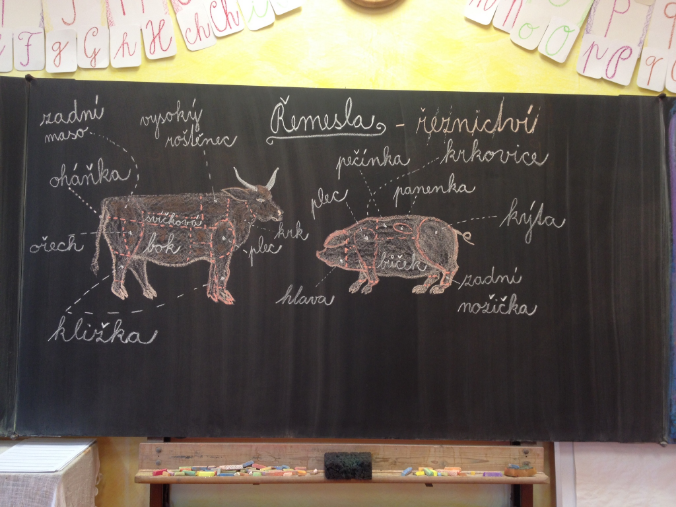 f F g G h H ch Ch i
n o O p P q
Řemesla - řeznictví
zadní
maso
vysoký
roštěnec
oháňka
svíčková
ořech
bok
krk
plec
kližka
pečínka
krkovice
plec
panenka
krýta
bůček
hlava
zadní
nožička